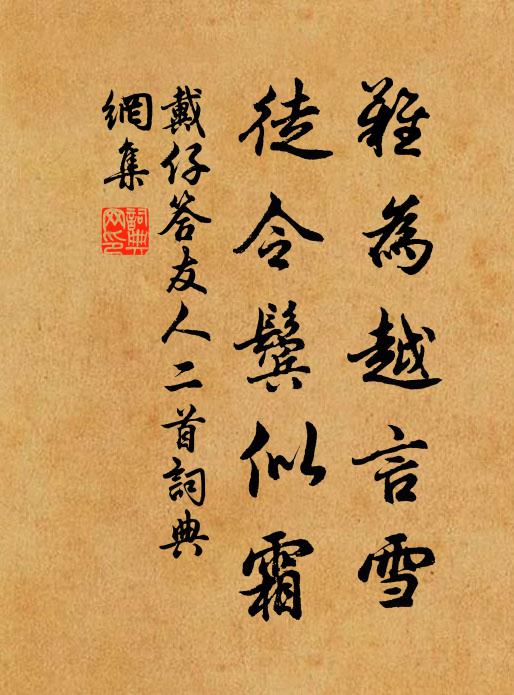 難為越言雪
徒令鬓似霜
戴仔答友人二首詞典
網集
詞典
网印